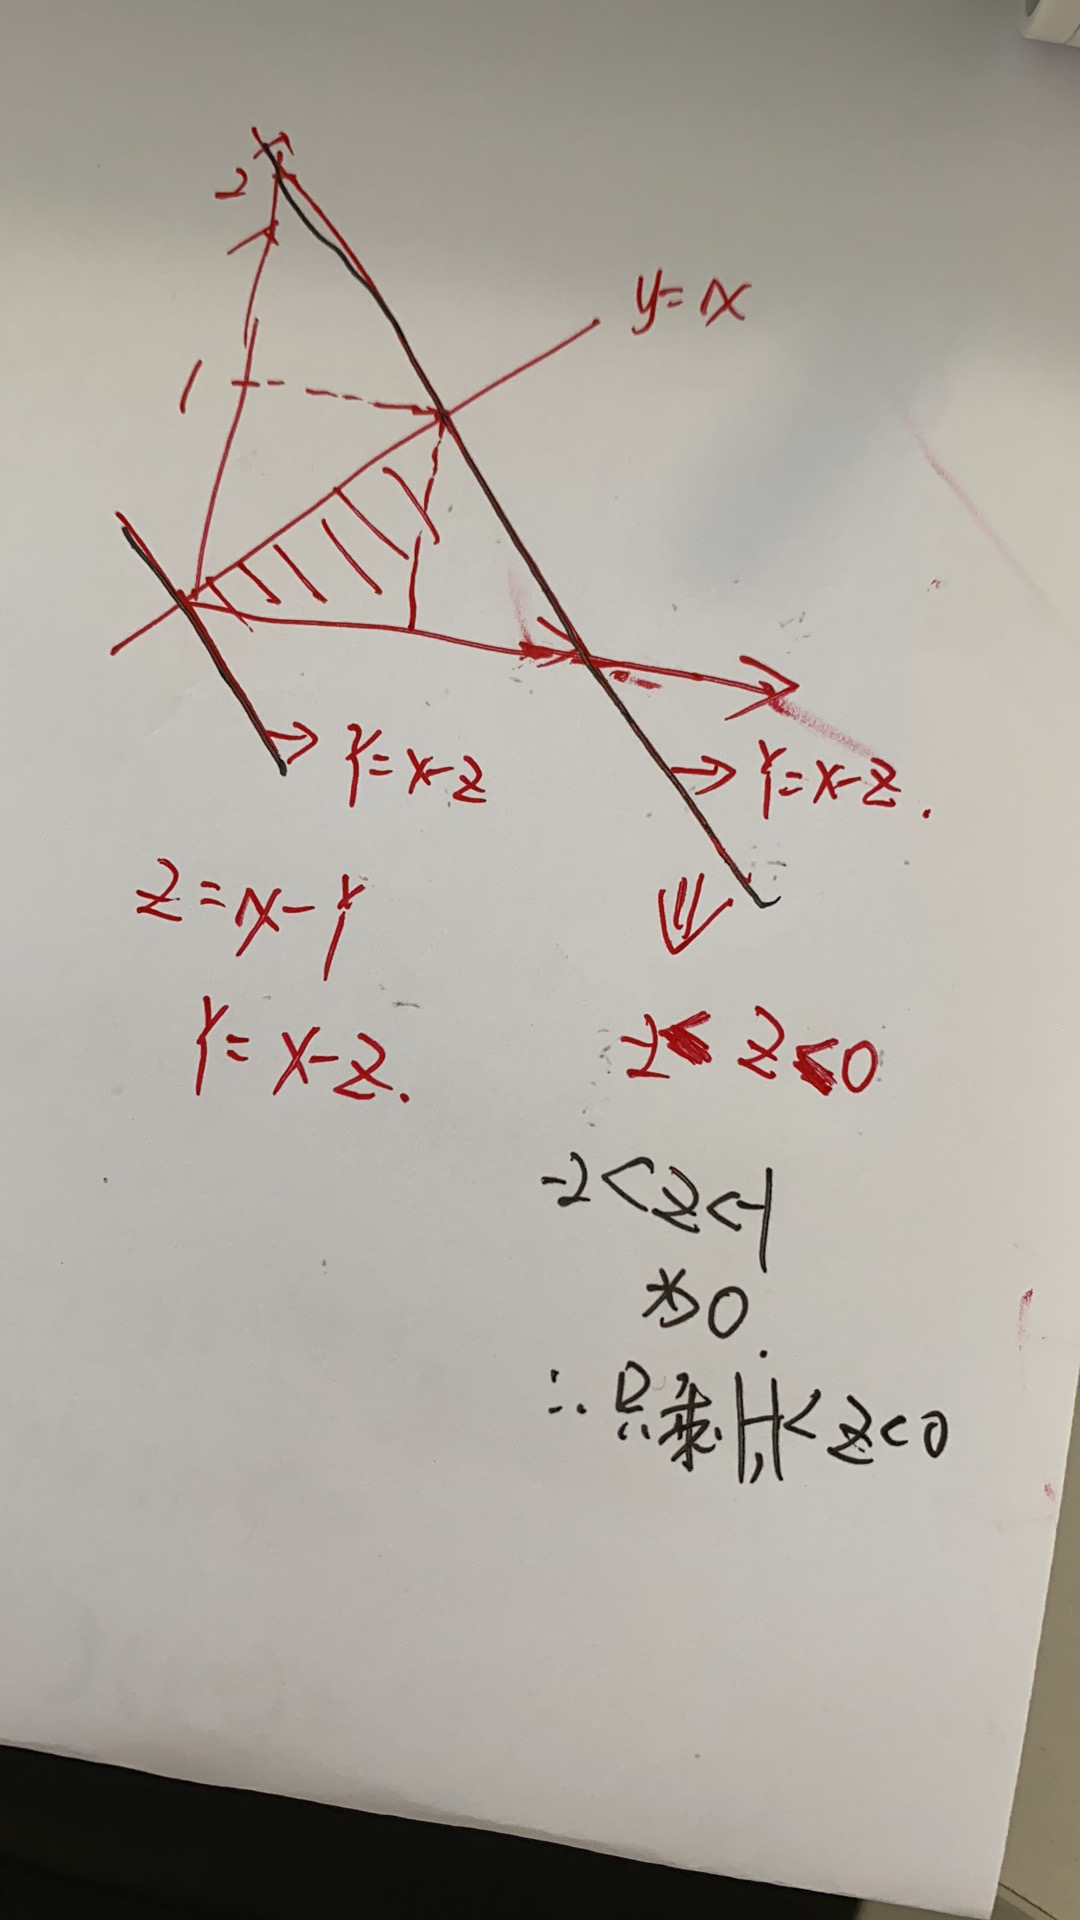 2
y=x
1
Y=x-z
Y=x-z.
z=x-y
Y=x-z.
-2<z<0
-2<z<-1
为0.
∴只剩 -1<z<0